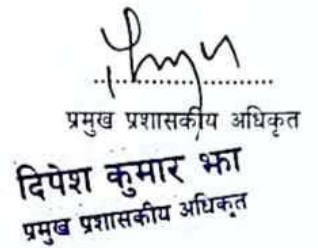 प्रमुख प्रशासकीय अधिकृत
दिपेश कुमार झा
प्रमुख प्रशासकीय अधिकृत